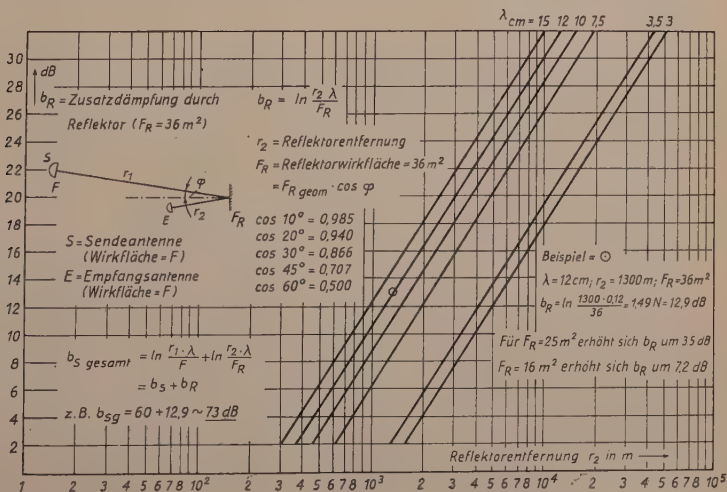 λcm = 15 12 10 7,5 3,5 3
32
30
28
26
24
22
20
18
16
14
12
10
8
6
4
2
dB
bR = Zusatzdämpfung durch
Reflektor (FR = 36 m²)
bR = ln r2 λ / FR
r2 = Reflektorentfernung
FR = Reflektorwirkfläche = 36 m²
= FR geom · cos φ
S
F
r1
φ
r2
E
FR
cos 10° = 0,985
cos 20° = 0,940
cos 30° = 0,866
cos 45° = 0,707
cos 60° = 0,500
S = Sendeantenne
(Wirkfläche = F)
E = Empfangsantenne
(Wirkfläche = F)
Beispiel = ⊙
λ = 12 cm; r2 = 1300 m; FR = 36 m²
bR = ln 1300 · 0,12 / 36 = 1,49 N = 12,9 dB
Für FR = 25 m² erhöht sich bR um 35 dB
FR = 16 m² erhöht sich bR um 7,2 dB
bS gesamt = ln r1 · λ / F + ln r2 · λ / FR
= bS + bR
z.B. bSg = 60 + 12,9 ~ 73 dB
Reflektorentfernung r2 in m
1 2 3 4 5 6 7 8 10² 2 3 4 5 6 7 8 10³ 2 3 4 5 6 7 8 10⁴ 2 3 4 5 6 7 8 10⁵